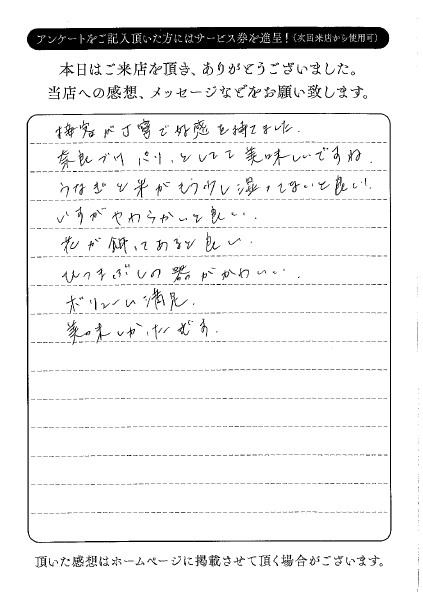 アンケートをご記入頂いた方にはサービス券を進呈！(次回来店から使用可)
本日はご来店を頂き、ありがとうございました。
当店への感想、メッセージなどをお願い致します。
接客が丁寧で好感を持てました.
奈良づけ パリッとしてて美味しいですね.
うなぎと米がもう少し湿ってないと良い!
いすがやわらかいと良い.
花が飾ってあると良い.
ひつまぶしの器がかわいい.
ボリューム満足.
美味しかったです.
頂いた感想はホームページに掲載させて頂く場合がございます。